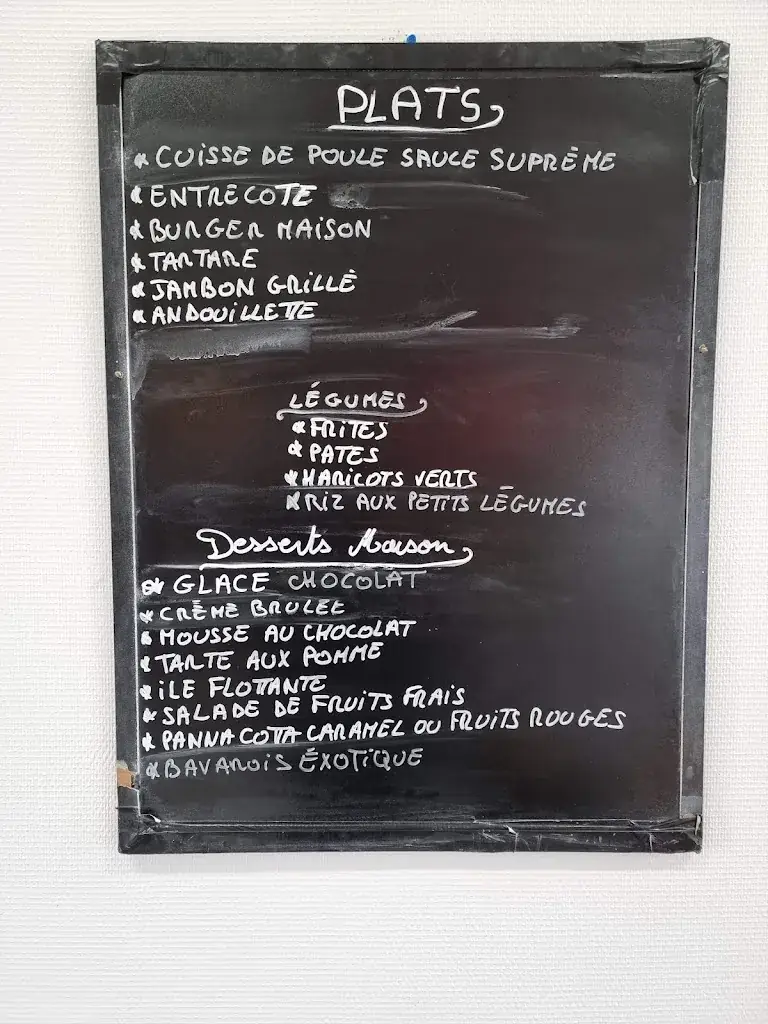 PLATS
* CUISSE DE POULE SAUCE SUPRÈME
* ENTRECOTE
* BURGER MAISON
* TARTARE
* JAMBON GRILLÉ
* ANDOUILLETTE
LÉGUMES
* FRITES
* PATES
* HARICOTS VERTS
* RIZ AUX PETITS LÉGUMES
Desserts Maison
* GLACE CHOCOLAT
* CRÈME BRULEE
* MOUSSE AU CHOCOLAT
* TARTE AUX POMME
* ILE FLOTTANTE
* SALADE DE FRUITS FRAIS
* PANNA COTTA CARAMEL OU FRUITS ROUGES
* BAVAROIS ÉXOTIQUE